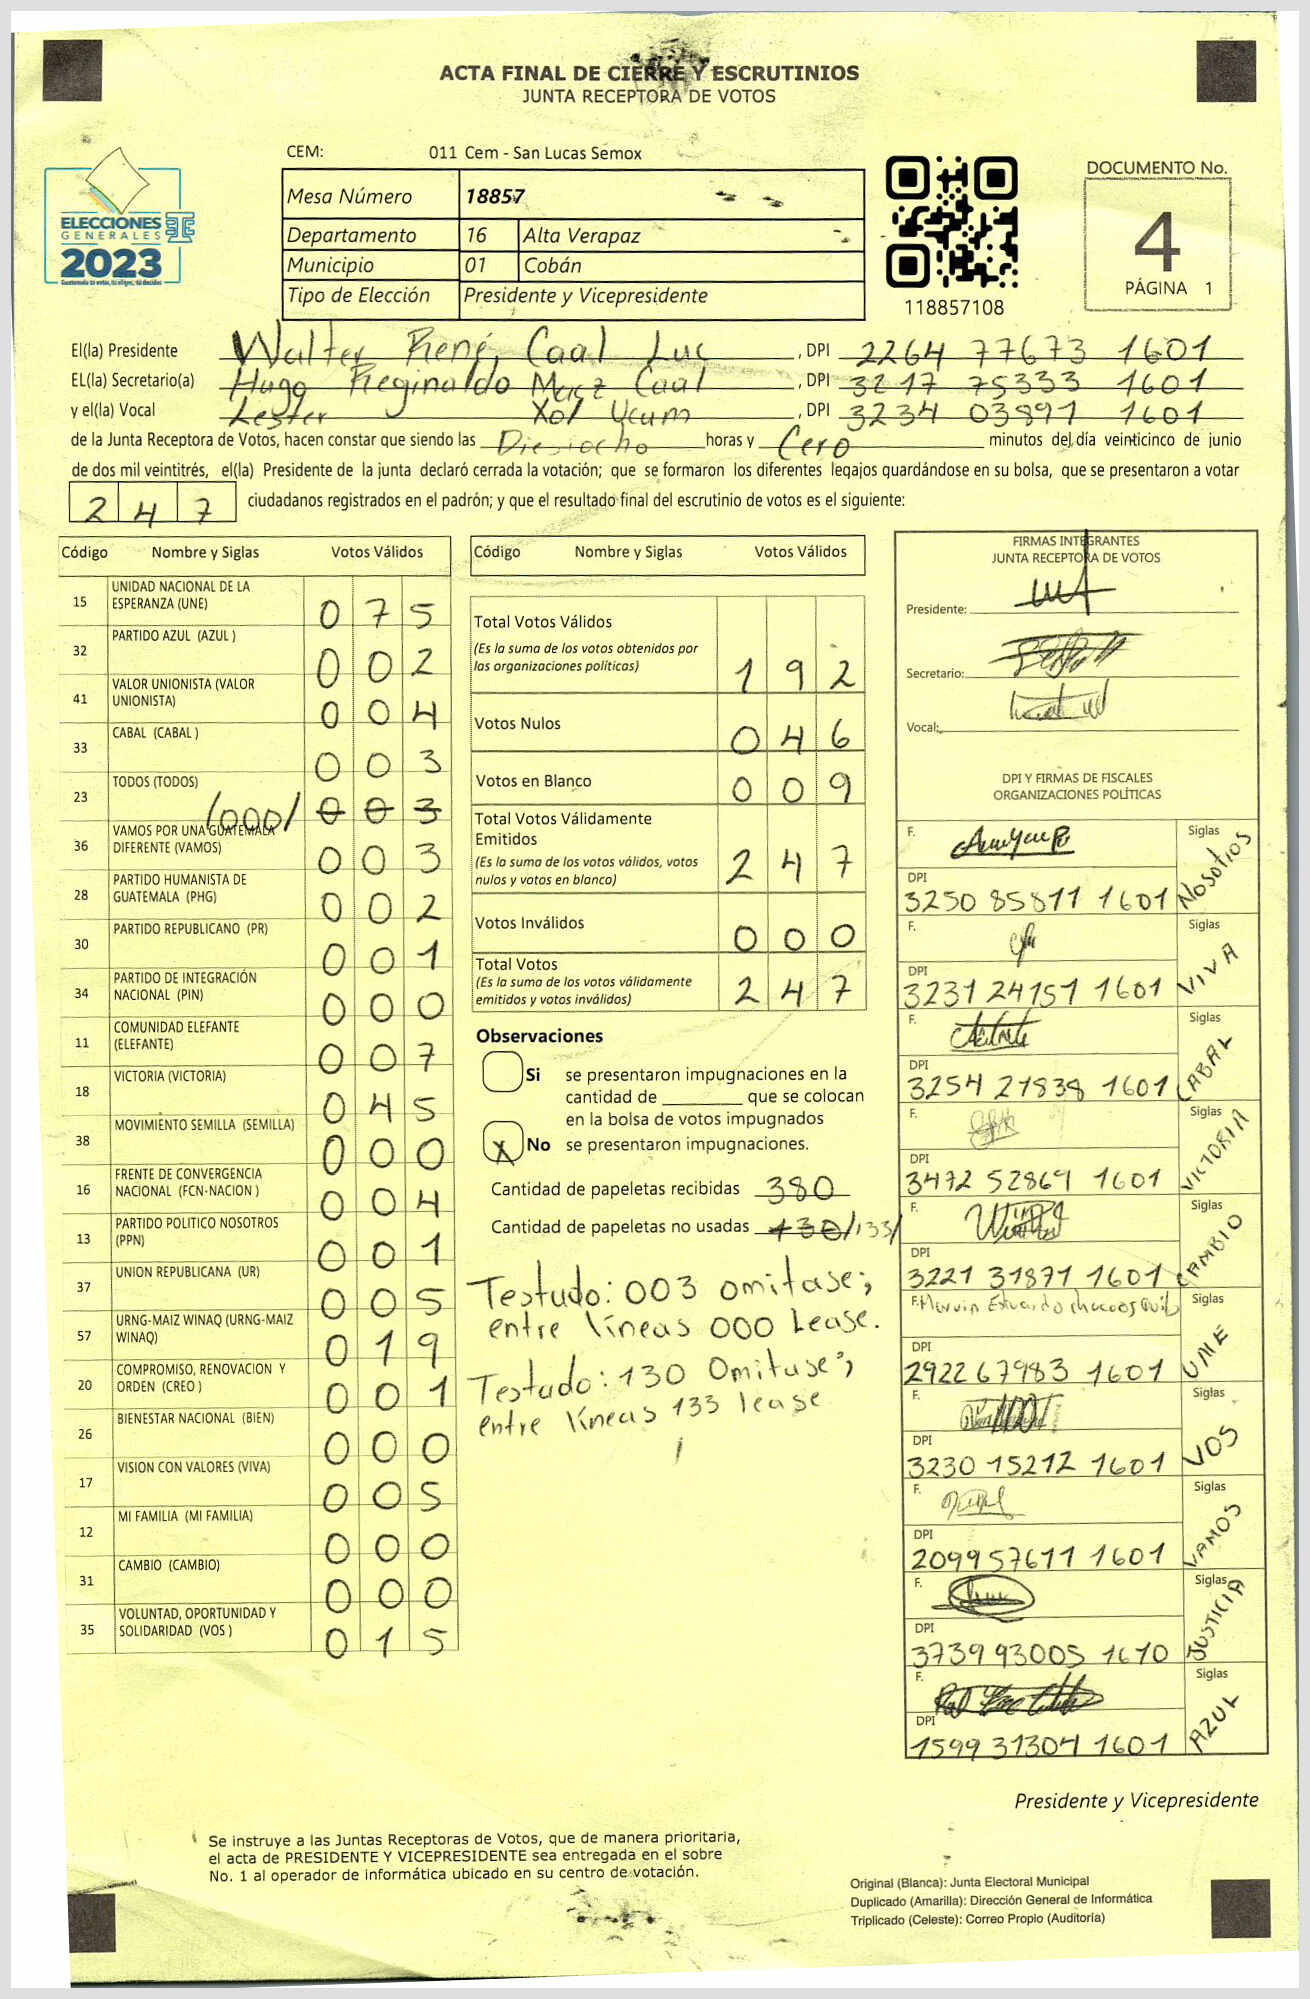 ACTA FINAL DE CIERRE Y ESCRUTINIOS
JUNTA RECEPTORA DE VOTOS
CEM: 011 Cem - San Lucas Semox
ELECCIONES
GENERALES
2023
Mesa Número 18857
Departamento 16 Alta Verapaz
Municipio 01 Cobán
Tipo de Elección Presidente y Vicepresidente
118857108
DOCUMENTO No.
4
PÁGINA 1
El(la) Presidente Walter René Caal Luc, DPI 2264 77673 1601
EL(la) Secretario(a) Hugo Reginaldo Maaz Caal, DPI 3217 75333 1601
y el(la) Vocal Lester Xol Ucum, DPI 3234 03891 1601
de la Junta Receptora de Votos, hacen constar que siendo las Dieciocho horas y Cero minutos del día veinticinco de junio
de dos mil veintitrés, el(la) Presidente de la junta declaró cerrada la votación; que se formaron los diferentes legajos guardándose en su bolsa, que se presentaron a votar
247 ciudadanos registrados en el padrón; y que el resultado final del escrutinio de votos es el siguiente:
Código Nombre y Siglas Votos Válidos
15 UNIDAD NACIONAL DE LA ESPERANZA (UNE) 075
32 PARTIDO AZUL (AZUL ) 002
41 VALOR UNIONISTA (VALOR UNIONISTA) 004
33 CABAL (CABAL ) 003
23 TODOS (TODOS) /000/ 003
36 VAMOS POR UNA GUATEMALA DIFERENTE (VAMOS) 003
28 PARTIDO HUMANISTA DE GUATEMALA (PHG) 002
30 PARTIDO REPUBLICANO (PR) 001
34 PARTIDO DE INTEGRACIÓN NACIONAL (PIN) 000
11 COMUNIDAD ELEFANTE (ELEFANTE) 007
18 VICTORIA (VICTORIA) 045
38 MOVIMIENTO SEMILLA (SEMILLA) 000
16 FRENTE DE CONVERGENCIA NACIONAL (FCN-NACION ) 004
13 PARTIDO POLITICO NOSOTROS (PPN) 001
37 UNION REPUBLICANA (UR) 005
57 URNG-MAIZ WINAQ (URNG-MAIZ WINAQ) 019
20 COMPROMISO, RENOVACION Y ORDEN (CREO ) 001
26 BIENESTAR NACIONAL (BIEN) 000
17 VISION CON VALORES (VIVA) 005
12 MI FAMILIA (MI FAMILIA) 000
31 CAMBIO (CAMBIO) 000
35 VOLUNTAD, OPORTUNIDAD Y SOLIDARIDAD (VOS ) 015
Código Nombre y Siglas Votos Válidos
Total Votos Válidos 192
(Es la suma de los votos obtenidos por
las organizaciones políticas)
Votos Nulos 046
Votos en Blanco 009
Total Votos Válidamente
Emitidos 247
(Es la suma de los votos válidos, votos
nulos y votos en blanco)
Votos Inválidos 000
Total Votos 247
(Es la suma de los votos válidamente
emitidos y votos inválidos)
Observaciones
Si se presentaron impugnaciones en la
cantidad de ________ que se colocan
en la bolsa de votos impugnados
X No se presentaron impugnaciones.
Cantidad de papeletas recibidas 380
Cantidad de papeletas no usadas 130/133/
Testado: 003 omitase;
entre líneas 000 Lease.
Testado: 130 Omitase;
entre líneas 133 lease
FIRMAS INTEGRANTES
JUNTA RECEPTORA DE VOTOS
Presidente:
Secretario:
Vocal:
DPI Y FIRMAS DE FISCALES
ORGANIZACIONES POLÍTICAS
F. Siglas NOSOTROS
DPI 3250 85811 1601
F. Siglas VIVA
DPI 3231 24151 1601
F. Siglas CABAL
DPI 3254 21838 1601
F. Siglas VICTORIA
DPI 3472 52869 1601
F. Siglas CAMBIO
DPI 3221 31871 1601
F. Marvin Estuardo Siglas UNE
DPI 2922 67983 1601
F. Siglas VOS
DPI 3230 15212 1601
F. Siglas VAMOS
DPI 2099 57611 1601
F. Siglas JUSTICIA
DPI 3739 93005 1610
F. Siglas AZUL
DPI 1599 31304 1601
Presidente y Vicepresidente
Se instruye a las Juntas Receptoras de Votos, que de manera prioritaria,
el acta de PRESIDENTE Y VICEPRESIDENTE sea entregada en el sobre
No. 1 al operador de informática ubicado en su centro de votación.
Original (Blanca): Junta Electoral Municipal
Duplicado (Amarilla): Dirección General de Informática
Triplicado (Celeste): Correo Propio (Auditoría)